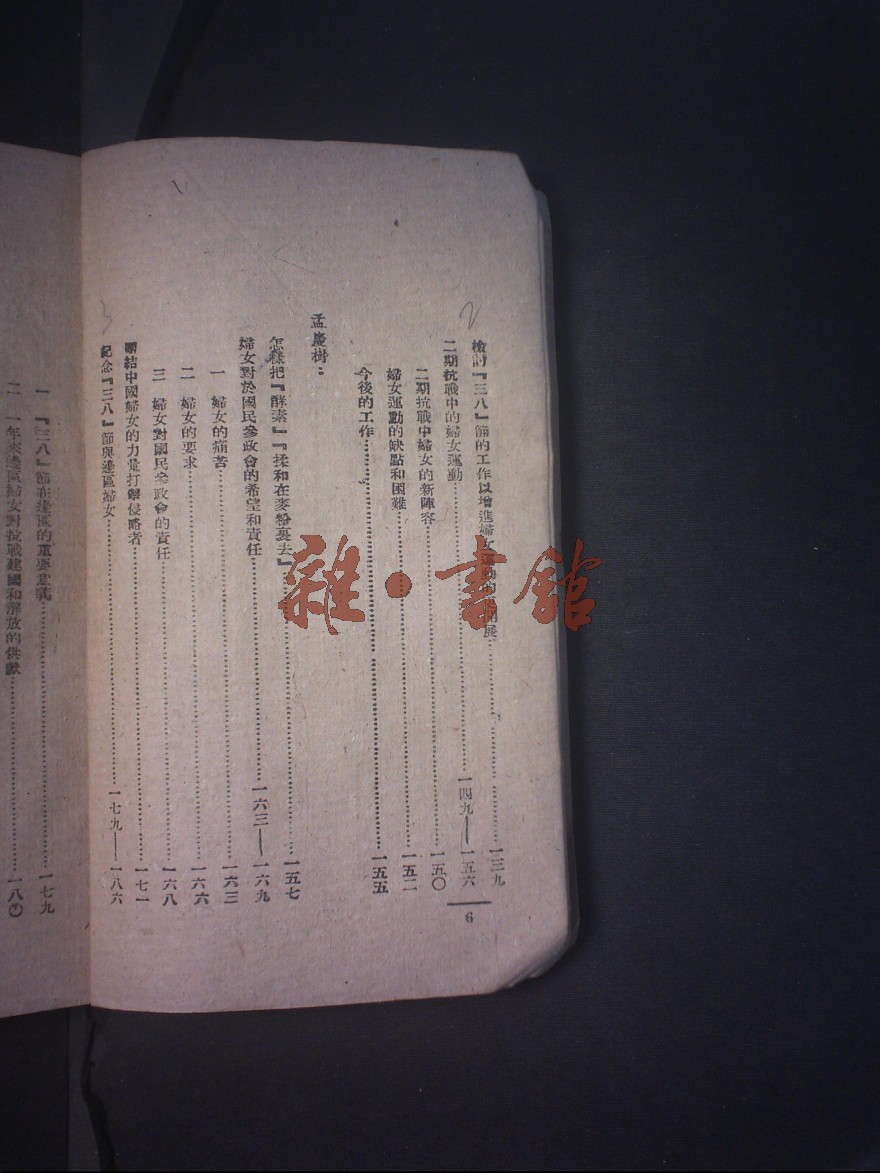 檢討『三八』節的工作以增進婦女運動的開展……一三九
二期抗戰中的婦女運動……一四九——一五六
二期抗戰中婦女的新陣容……一五〇
婦女運動的缺點和困難……一五二
今後的工作……一五五
孟慶樹：
怎樣把『酵素』『揉和在麥粉裏去』……一五七
婦女對於國民參政會的希望和責任……一六三——一六九
一　婦女的痛苦……一六三
二　婦女的要求……一六六
三　婦女對國民參政會的責任……一六八
團結中國婦女的力量打擊侵略者……一七一
紀念『三八』節與邊區婦女……一七九——一八六
一　『三八』節在邊區的重要意義……一七九
二　一年來邊區婦女對抗戰建國和解放的供獻……一八〇
6
雜·書館